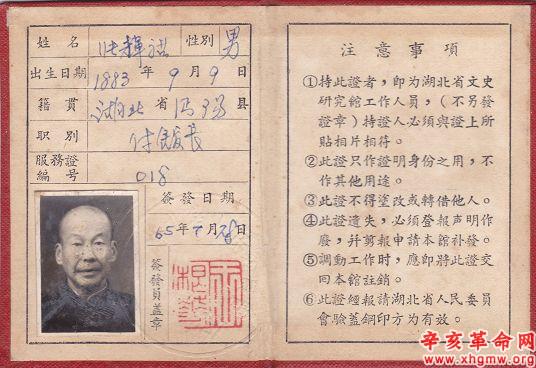 姓名 性別 男
出生日期 1883年9月9日
籍貫 湖北省沔陽县
职别 付館长
服務證
編号 018
簽發日期
65年7月28日
簽發員蓋章
注意事項
①持此證者，即为湖北省文史
研究館工作人員，（不另發
證章）持證人必須與證上所
貼相片相符。
②此證只作證明身份之用，不
作其他用途。
③此證不得塗改或轉借他人。
④此證遺失，必須登報声明作
廢，幷剪報申請本館补發。
⑤調動工作時，應即將此證交
回本館註銷。
⑥此證經報請湖北省人民委員
會驗蓋鋼印方为有效。
辛亥革命网
www.xhgmw.org